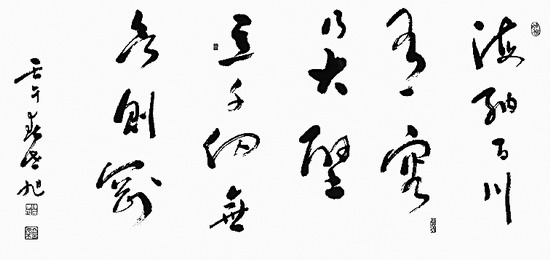 海納百川
有容
乃大壁
立千仞無
欲則剛
壬午春